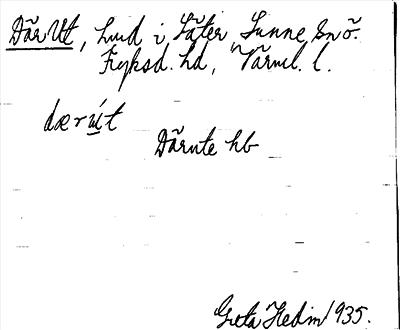 Där Ut, lmd i Säter, Sunne sn ö.
Fryksd. hd, Värml. l.
dærút
Därute hb
Greta Hedin 1935.